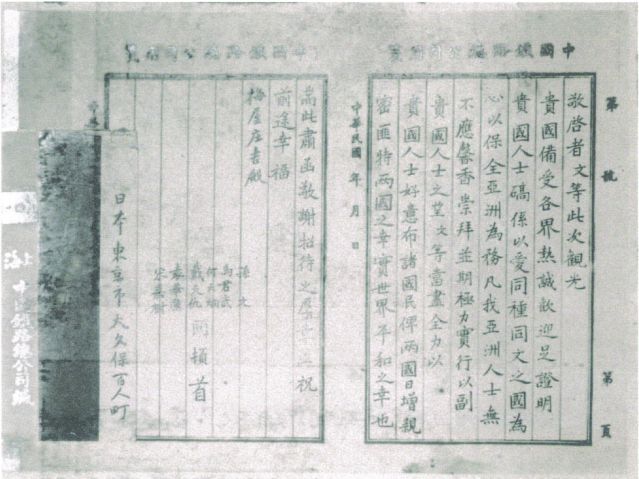 中國鐵路總公司用箋
第 號
敬啓者文等此次觀光
貴國備受各界熱誠歡迎足證明
貴國人士礄係以愛同種同文之國為
心以保全亞洲為務凡我亞洲人士無
不應馨香崇拜並期極力實行以副
貴國人士之望文等當盡全力以
貴國人士好意布諸國民俾兩國日增親
密匪特兩國之幸實世界平和之幸也
第 頁
中華民國 年 月 日
中國鐵路總公司用箋
耑此肅函敬謝招待之厚 並祝
前途幸福
梅屋庄吉殿
孫文
馬君武
何天炯
戴天仇
袁華選
宋嘉樹
同頓首
日本東京市大久保百人町
上海
中國鐵路總公司緘